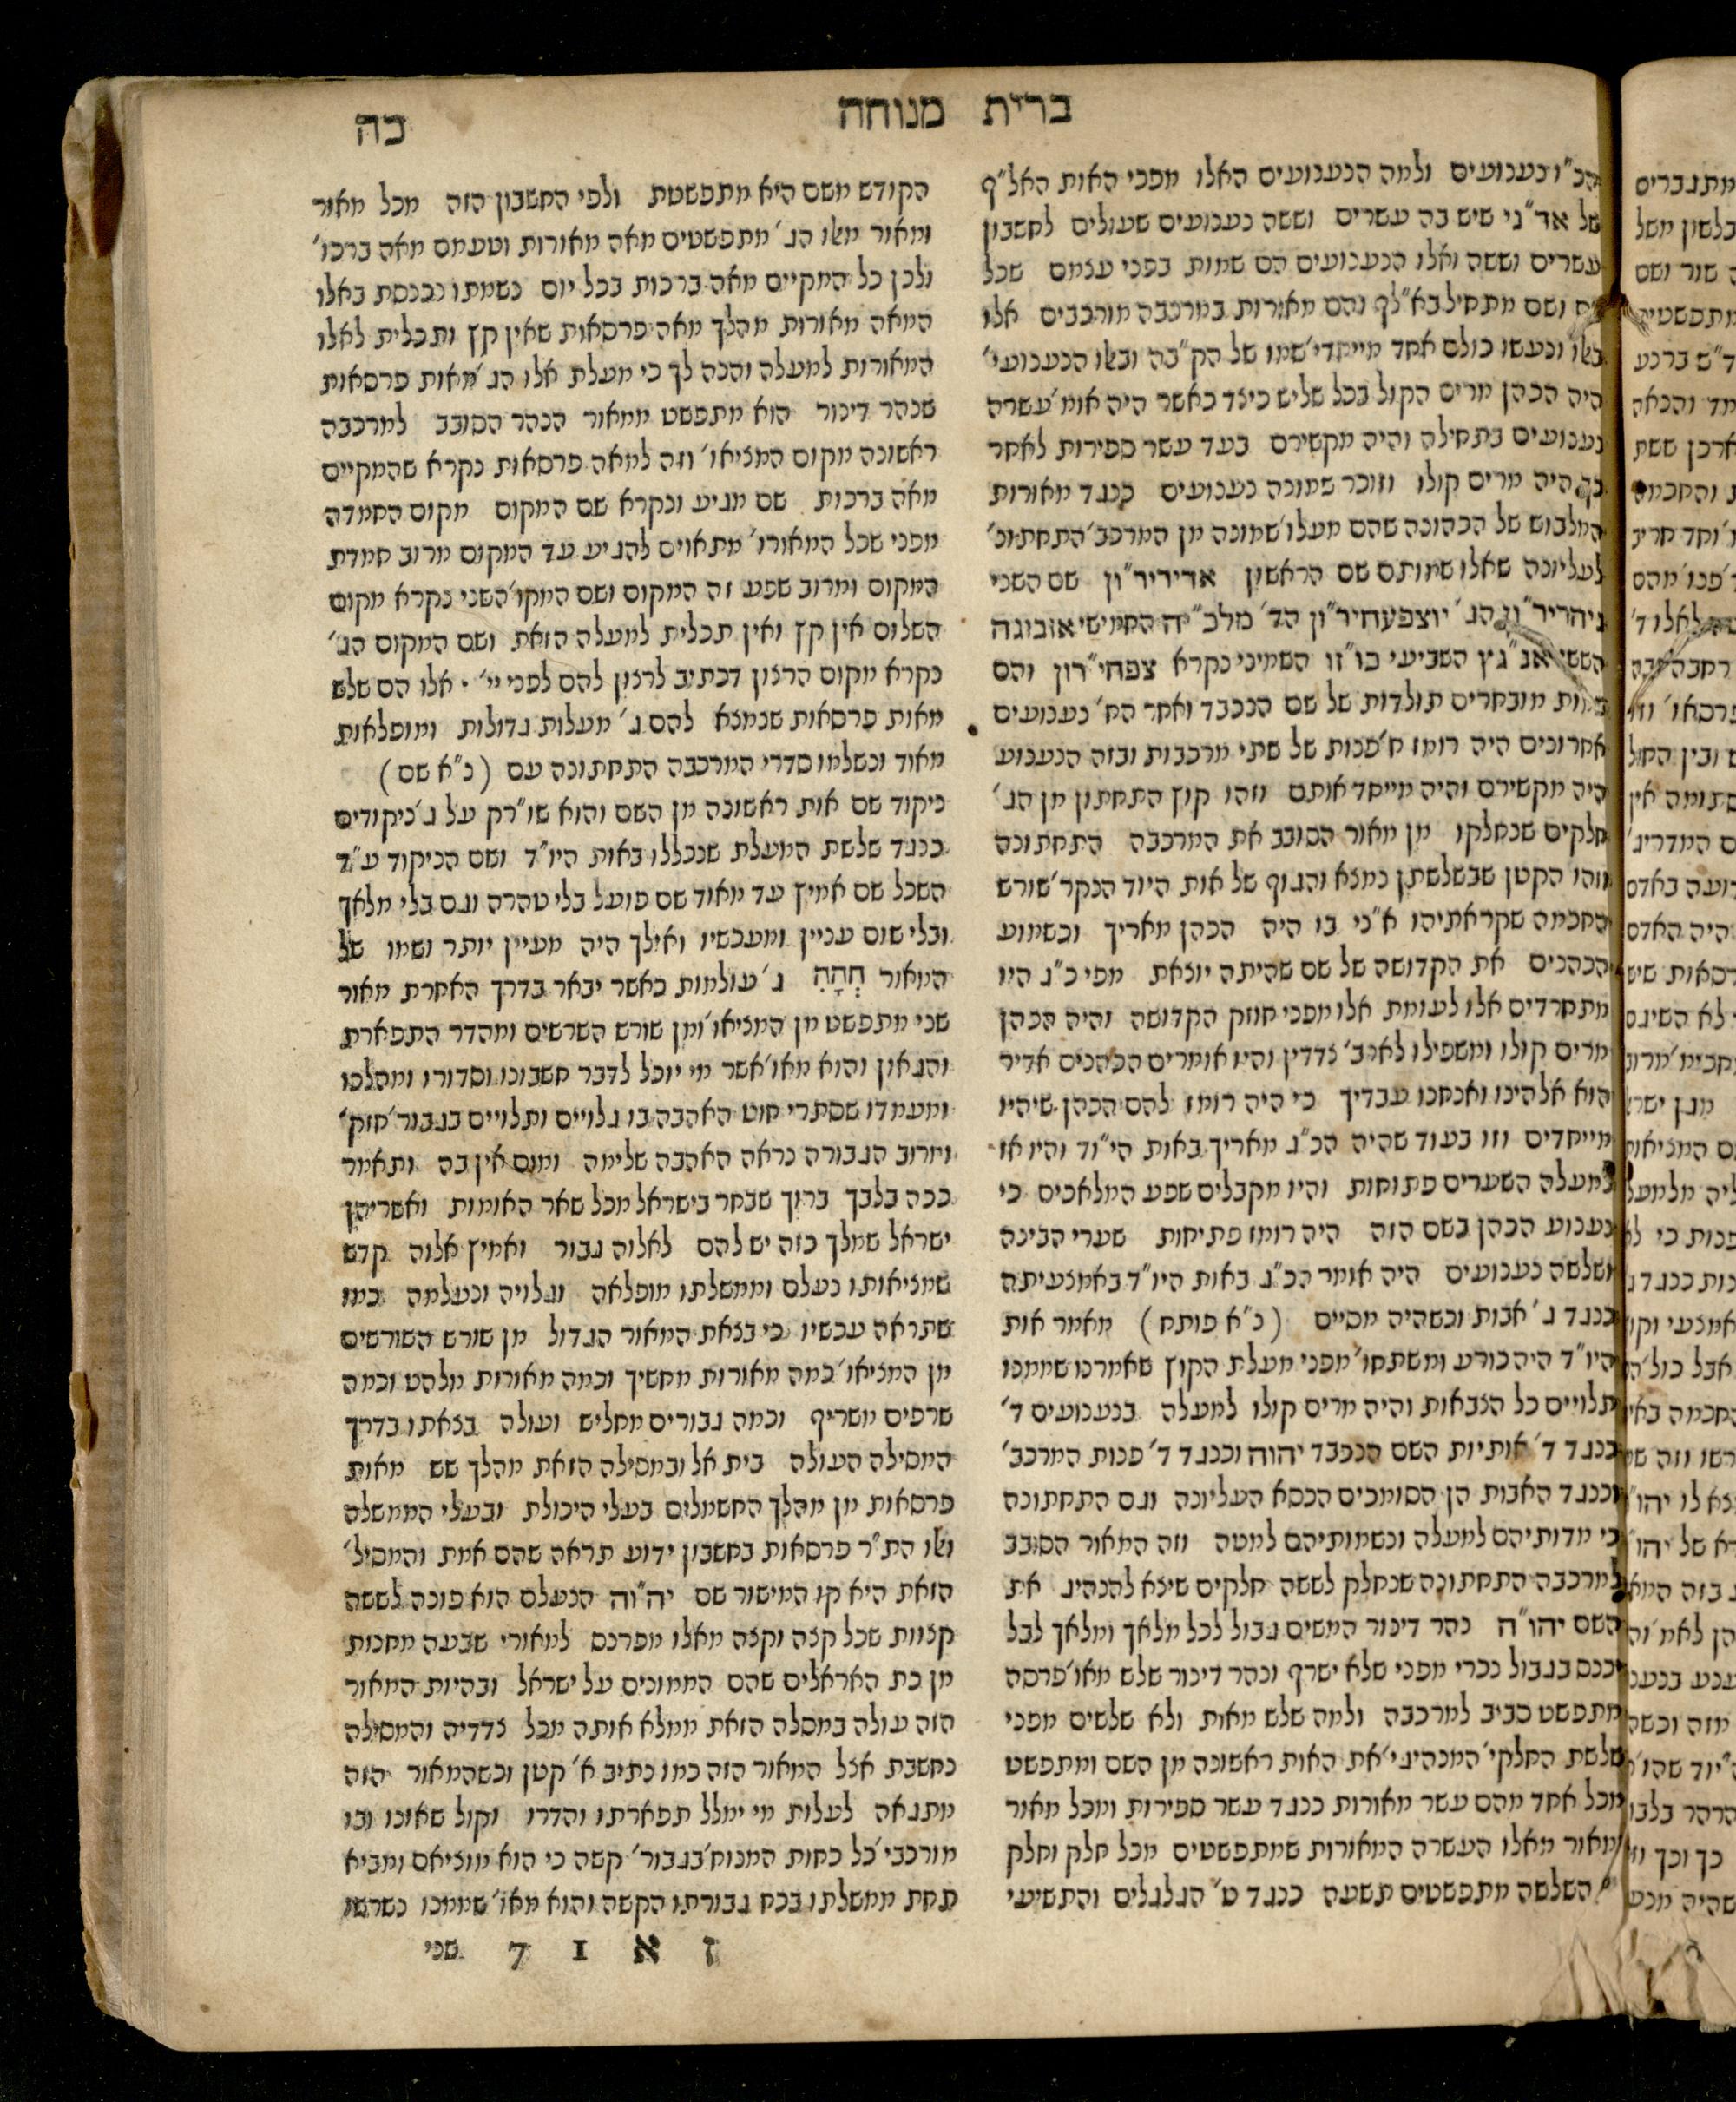 ברית מנוחה
כה
הכ"ו נענועים ולמה הנענועים האלו מפני האות האל"ף
של אד"ני שיש בה עשרים וששה נענועים שעולים לחשבון
עשרים וששה ואלו הנענועים הם שמות בפני עצמם שכל
ושם מתחיל בא"לף והם מאורות במרכבה מורכבים אלו
באלו ונעשו כולם אחד מייחדי' שמו של הק"בה ובאלו הנענועי'
היה הכהן מרים הקול בכל שליש כיצד כאשר היה אומ' עשרה
נענועים בתחילה והיה מקשירם בעד עשר ספירות לאחר
כך היה מרים קולו וזוכר שמונה נענועים כנגד מאורות
המלבוש של הכהונה שהם מעלו' שמונה מן המרכב' התחתונ'
לעליונה שאלו שמותם שם הראשון אדירי"רון שם השני
ניהריר"ון הג' יוצפעחיר"ון הד' מלכ"יה החמישי אזבוגה
הששי אנ"גץ השביעי כו"זו השמיני נקרא צפחי"רון והם
שמות מובחרים תולדות של שם הנכבד ואחר הח' נענועים
אחרונים היה רומז ח' פנות של שתי מרכבות ובזה הנענוע
היה מקשירם והיה מייחד אותם וזהו קוץ התחתון מן הג'
חלקים שנחלקו מן מאור הסובב את המרכבה התחתונה
וזהו הקטן שבשלשתן נמצא והגוף של אות היוד הנקר' שורש
החכמה שקראתיהו א"ני בו היה הכהן מאריך וכשמוע
הכהנים את הקדושה של שם שהיתה יוצאת מפי כ"ג היו
מתחרדים אלו לעומת אלו מפני חוזק הקדושה והיה הכהן
מרים קולו ומשפילו לארב' צדדין והיו אומרים הכהנים אדיר
הוא אלהינו ואנחנו עבדיך כי היה רומז להם הכהן שיהיו
מייחדים וזו בעוד שהיה הכ"ג מאריך באות הי"וד והיו אז
במעלה השערים פתוחות והיו מקבלים שפע המלאכים כי
נענוע הכהן בשם הזה היה רומז פתיחות שערי הבינה
ושלשה נענועים היה אומר הכ"ג באות היו"ד באמצעיתה
כנגד ג' אבות וכשהיה מסיים (נ"א פותח) מאמר אות
היו"ד היה כורע ומשתחו' מפני מעלת הקוץ שאמרנו שממנו
תלויים כל הצבאות והיה מרים קולו למעלה בנענועים ד'
כנגד ד' אותיות השם הנכבד יהוה וכנגד ד' פנות המרכב'
וכנגד האבות הן הסומכים הכסא העליונה וגם התחתונה
כי מדותיהם למעלה ונשמותיהם למטה וזה המאור הסובב
למרכבה התחתונה שנחלק לששה חלקים שיצא להנהיג את
השם יהו"ה נהר דינור המשים גבול לכל מלאך ומלאך לבל
יכנס בגבול נכרי מפני שלא ישרף ונהר דינור שלש מאו' פרסה
מתפשט סביב למרכבה ולמה שלש מאות ולא שלשים מפני
שלשת החלקי' המנהיגי' את האות ראשונה מן השם ומתפשט
מכל אחד מהם עשר מאורות כנגד עשר ספירות ומכל מאור
ומאור מאלו העשרה המאורות שמתפשטים מכל חלק וחלק
השלשה מתפשטים תשעה כנגד ט' הגלגלים והתשיעי
הקודש משם היא מתפשטת ולפי החשבון הזה מכל מאור
ומאור מאלו הג' מתפשטים מאה מאורות וטעמם מאה ברכו'
ולכן כל המקיים מאה ברכות בכל יום נשמתו נכנסת באלו
המאה מאורות מהלך מאה פרסאות שאין קץ ותכלית לאלו
המאורות למעלה והנה לך כי מעלת אלו הג' מאות פרסאות
שנהר דינור הוא מתפשט ממאור הנהר הסובב למרכבה
ראשונה מקום המציאו' וזה למאה פרסאות נקרא שהמקיים
מאה ברכות שם מגיע ונקרא שם המקום מקום החמדה
מפני שכל המאורו' מתאוים להגיע עד המקום מרוב חמדת
המקום ומרוב שפע זה המקום ושם המקו' השני נקרא מקום
השלום אין קץ ואין תכלית למעלה הזאת ושם המקום הג'
נקרא מקום הרצון דכתיב לרצון להם לפני יי' . אלו הם שלש
מאות פרסאות שנמצא להם ג' מעלות גדולות ומופלאות
מאוד ונשלמו סדרי המרכבה התחתונה עם (נ"א שם)
ניקוד שם אות ראשונה מן השם והוא שו"רק על ג' ניקודים
כנגד שלשת המעלת שנכללו באות היו"ד ושם הניקוד ע"ד
השכל שם אמיץ עד מאוד שם פועל בלי טהרה וגם בלי מלאך
ובלי שום עניין ומעכשיו ואילך היה מעיין יותר ושמו של
המאור חְהָהִ ג' עולמות כאשר יבאר בדרך האחרת מאור
שני מתפשט מן המציאו' ומן שורש השרשים ומהדר התפארת
והגאון והוא מאו' אשר מי יוכל לדבר חשבונו וסדורו ומהלכו
ומעמדו שסתרי חוט האהבה בו גלויים ותלויים בגבור' חזק'
ומרוב הגבורה נראה האהבה שלימה ומום אין בה ותאמר
ככה בלבך ברוך שבחר בישראל מכל שאר האומות ואשריהן
ישראל שמלך כזה יש להם לאלוה גבור ואמיץ אלוה קדש
שמציאותו נעלם וממשלתו מופלאה וגלויה ונעלמה כמו
שתראה עכשיו כי בצאת המאור הגדול מן שורש השורשים
מן המציאו' כמה מאורות מחשיך וכמה מאורות מלהט וכמה
שרפים משריף וכמה גבורים מחליש ועולה בצאתו בדרך
המסילה העולה בית אל ובמסילה הזאת מהלך שש מאות
פרסאות מן מהלך החשמלים בעלי היכולת ובעלי הממשלה
ואלו הת"ר פרסאות בחשבון ידוע תראה שהם אמת והמסיל'
הזאת היא קו המישור שם יה"וה הנעלם הוא פונה לששה
קצוות שכל קצה וקצה מאלו מפרנס למאורי שבעה מחנות
מן כת האראלים שהם הממונים על ישראל ובהיות המאור
הזה עולה במסלה הזאת ממלא אותה מכל צדדיה והמסילה
נחשבת אצל המאור הזה כמו כתיב א' קטן וכשהמאור הזה
מתגאה לעלות מי ימלל תפארתו והדרו וקול שאונו ובו
מורכבי' כל כחות המנוח' בגבור' קשה כי הוא מוציאם ומביא
תחת ממשלתו בכח גבורתו הקשה והוא מאו' שממנו נשרשו
ז א 1 7 שני